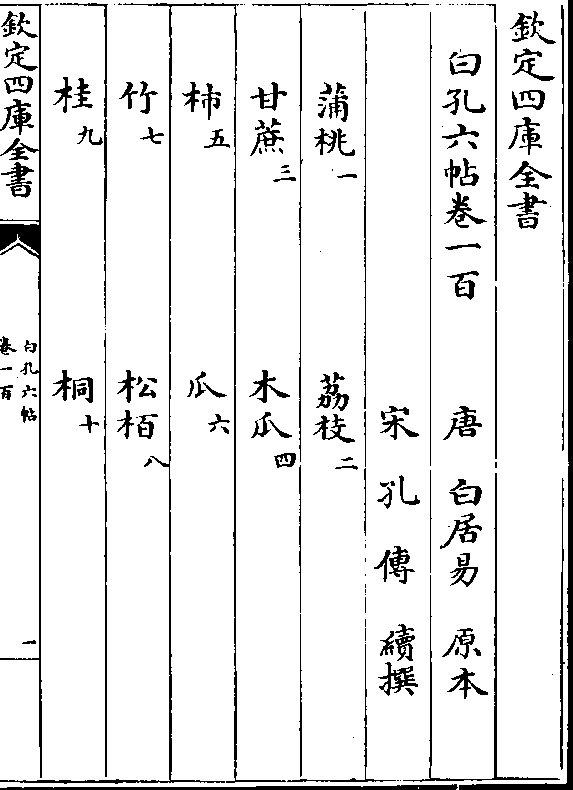 欽定四庫全書
白孔六帖卷一百
唐 白居易 原本
宋 孔傳 續撰
蒲桃一 荔枝二
甘蔗三 木瓜四
柿五 瓜六
竹七 松栢八
桂九 桐十
欽定四庫全書
白孔六帖
卷一百
一